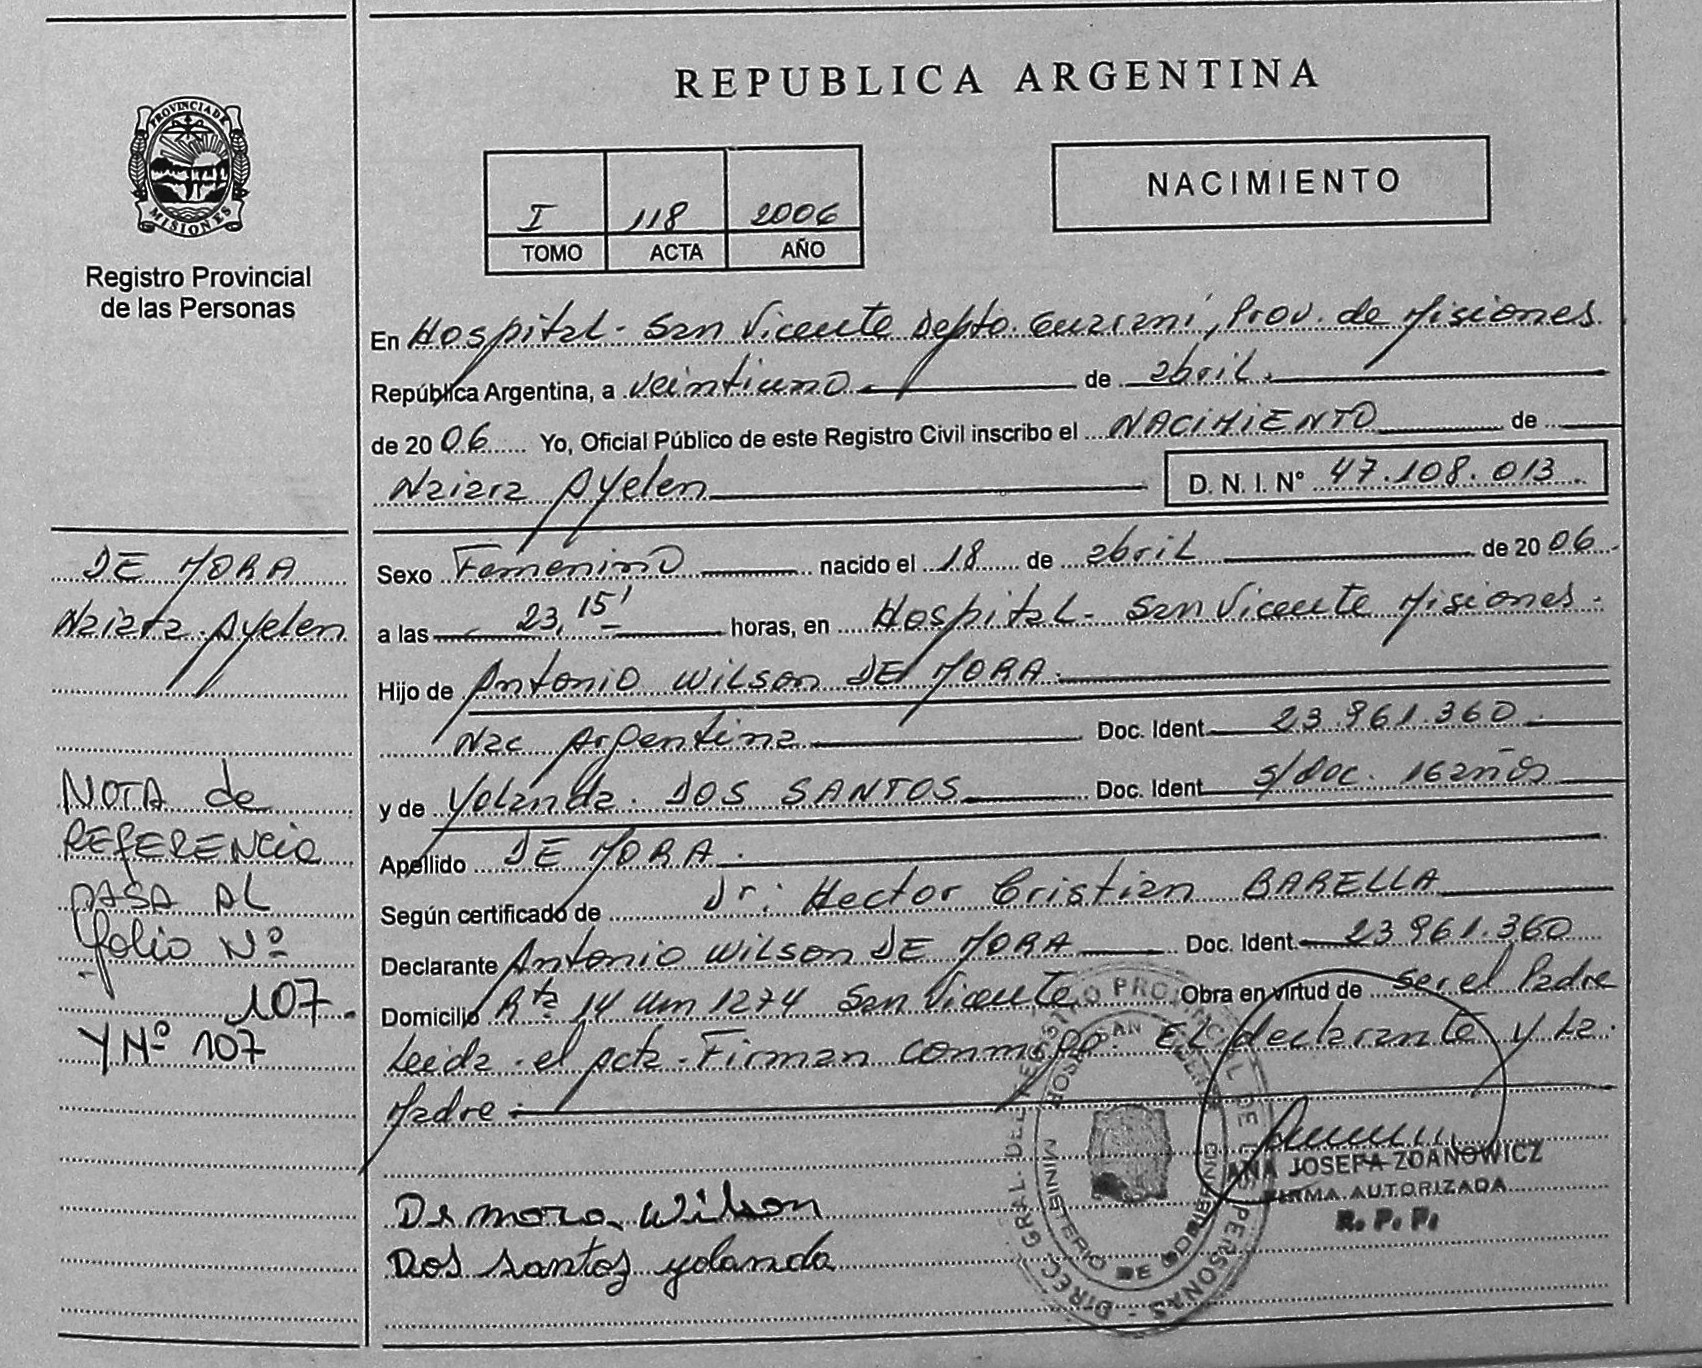 REPUBLICA ARGENTINA
PROVINCIA DE
MISIONES
Registro Provincial
de las Personas
I 118 2006
TOMO ACTA AÑO
NACIMIENTO
En Hospital - San Vicente Depto. Guarani, Prov. de Misiones
República Argentina, a veintiuno de abril.
de 2006 Yo, Oficial Público de este Registro Civil inscribo el NACIMIENTO de
Naiara Ayelen D. N. I. Nº 47.108.013.
DE MORA
Naiara Ayelen
Sexo Femenino nacido el 18 de abril de 2006.
a las 23,15' horas, en Hospital - San Vicente Misiones.
Hijo de Antonio Wilson DE MORA.
Nac Argentina Doc. Ident. 23.961.360.
y de Yolanda. DOS SANTOS Doc. Ident. s/doc. 16 años
Apellido DE MORA.
Según certificado de Dr: Hector Cristian BARELLA
Declarante Antonio Wilson DE MORA Doc. Ident. 23 961.360
Domicilio Rta 14 Km 1274 San Vicente Obra en virtud de ser el Padre
Leida el Acta - Firman conmigo. El declarante y la.
Madre.
NOTA de
REFERENCIA
PASA AL
folio Nº
107.
Y Nº 107
De mora Wilson
Dos santos yolanda
DIREC. GRAL. DEL REGISTRO PROVINCIAL DE LAS PERSONAS
MINISTERIO DE GOBIERNO
ANA JOSEFA ZDANOWICZ
FIRMA AUTORIZADA
R. P. P.